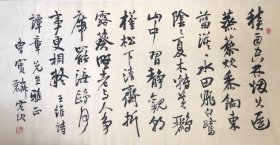 積雨空林煙火遲
蒸藜炊黍餉東
菑漠漠水田飛白鷺
陰陰夏木囀黃鸝
山中習靜觀朝
槿松下清齋折
露葵野老與人爭
席罷海鷗何
事更相疑 王維詩
先生雅正
曹寶麟